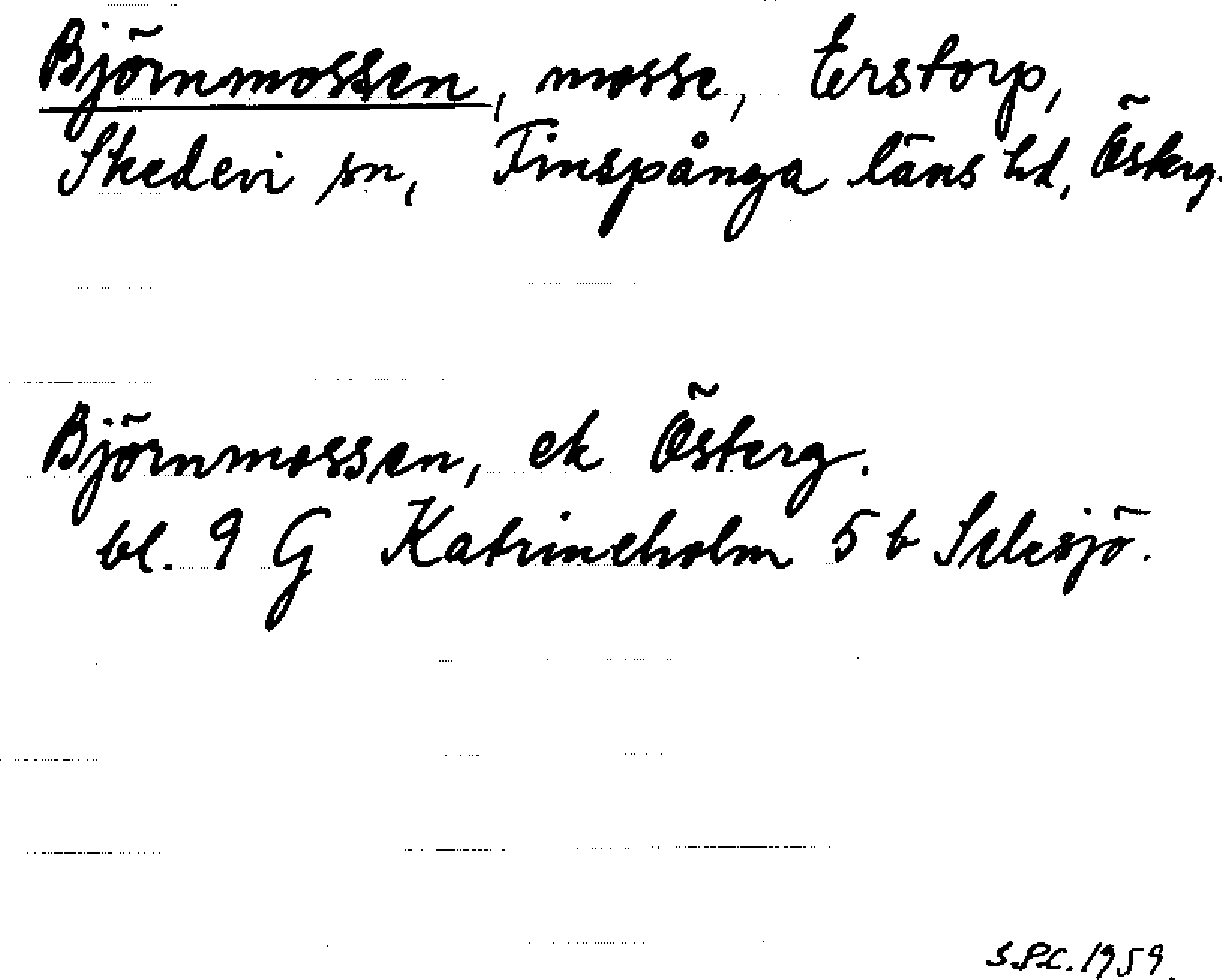 Björnmossen, mosse, Erstorp,
Skedevi sn, Finspånga läns hd, Österg.
Björnmossen, ek Österg.
bl. 9 G Katrineholm 5 b
S.P.L. 1959.